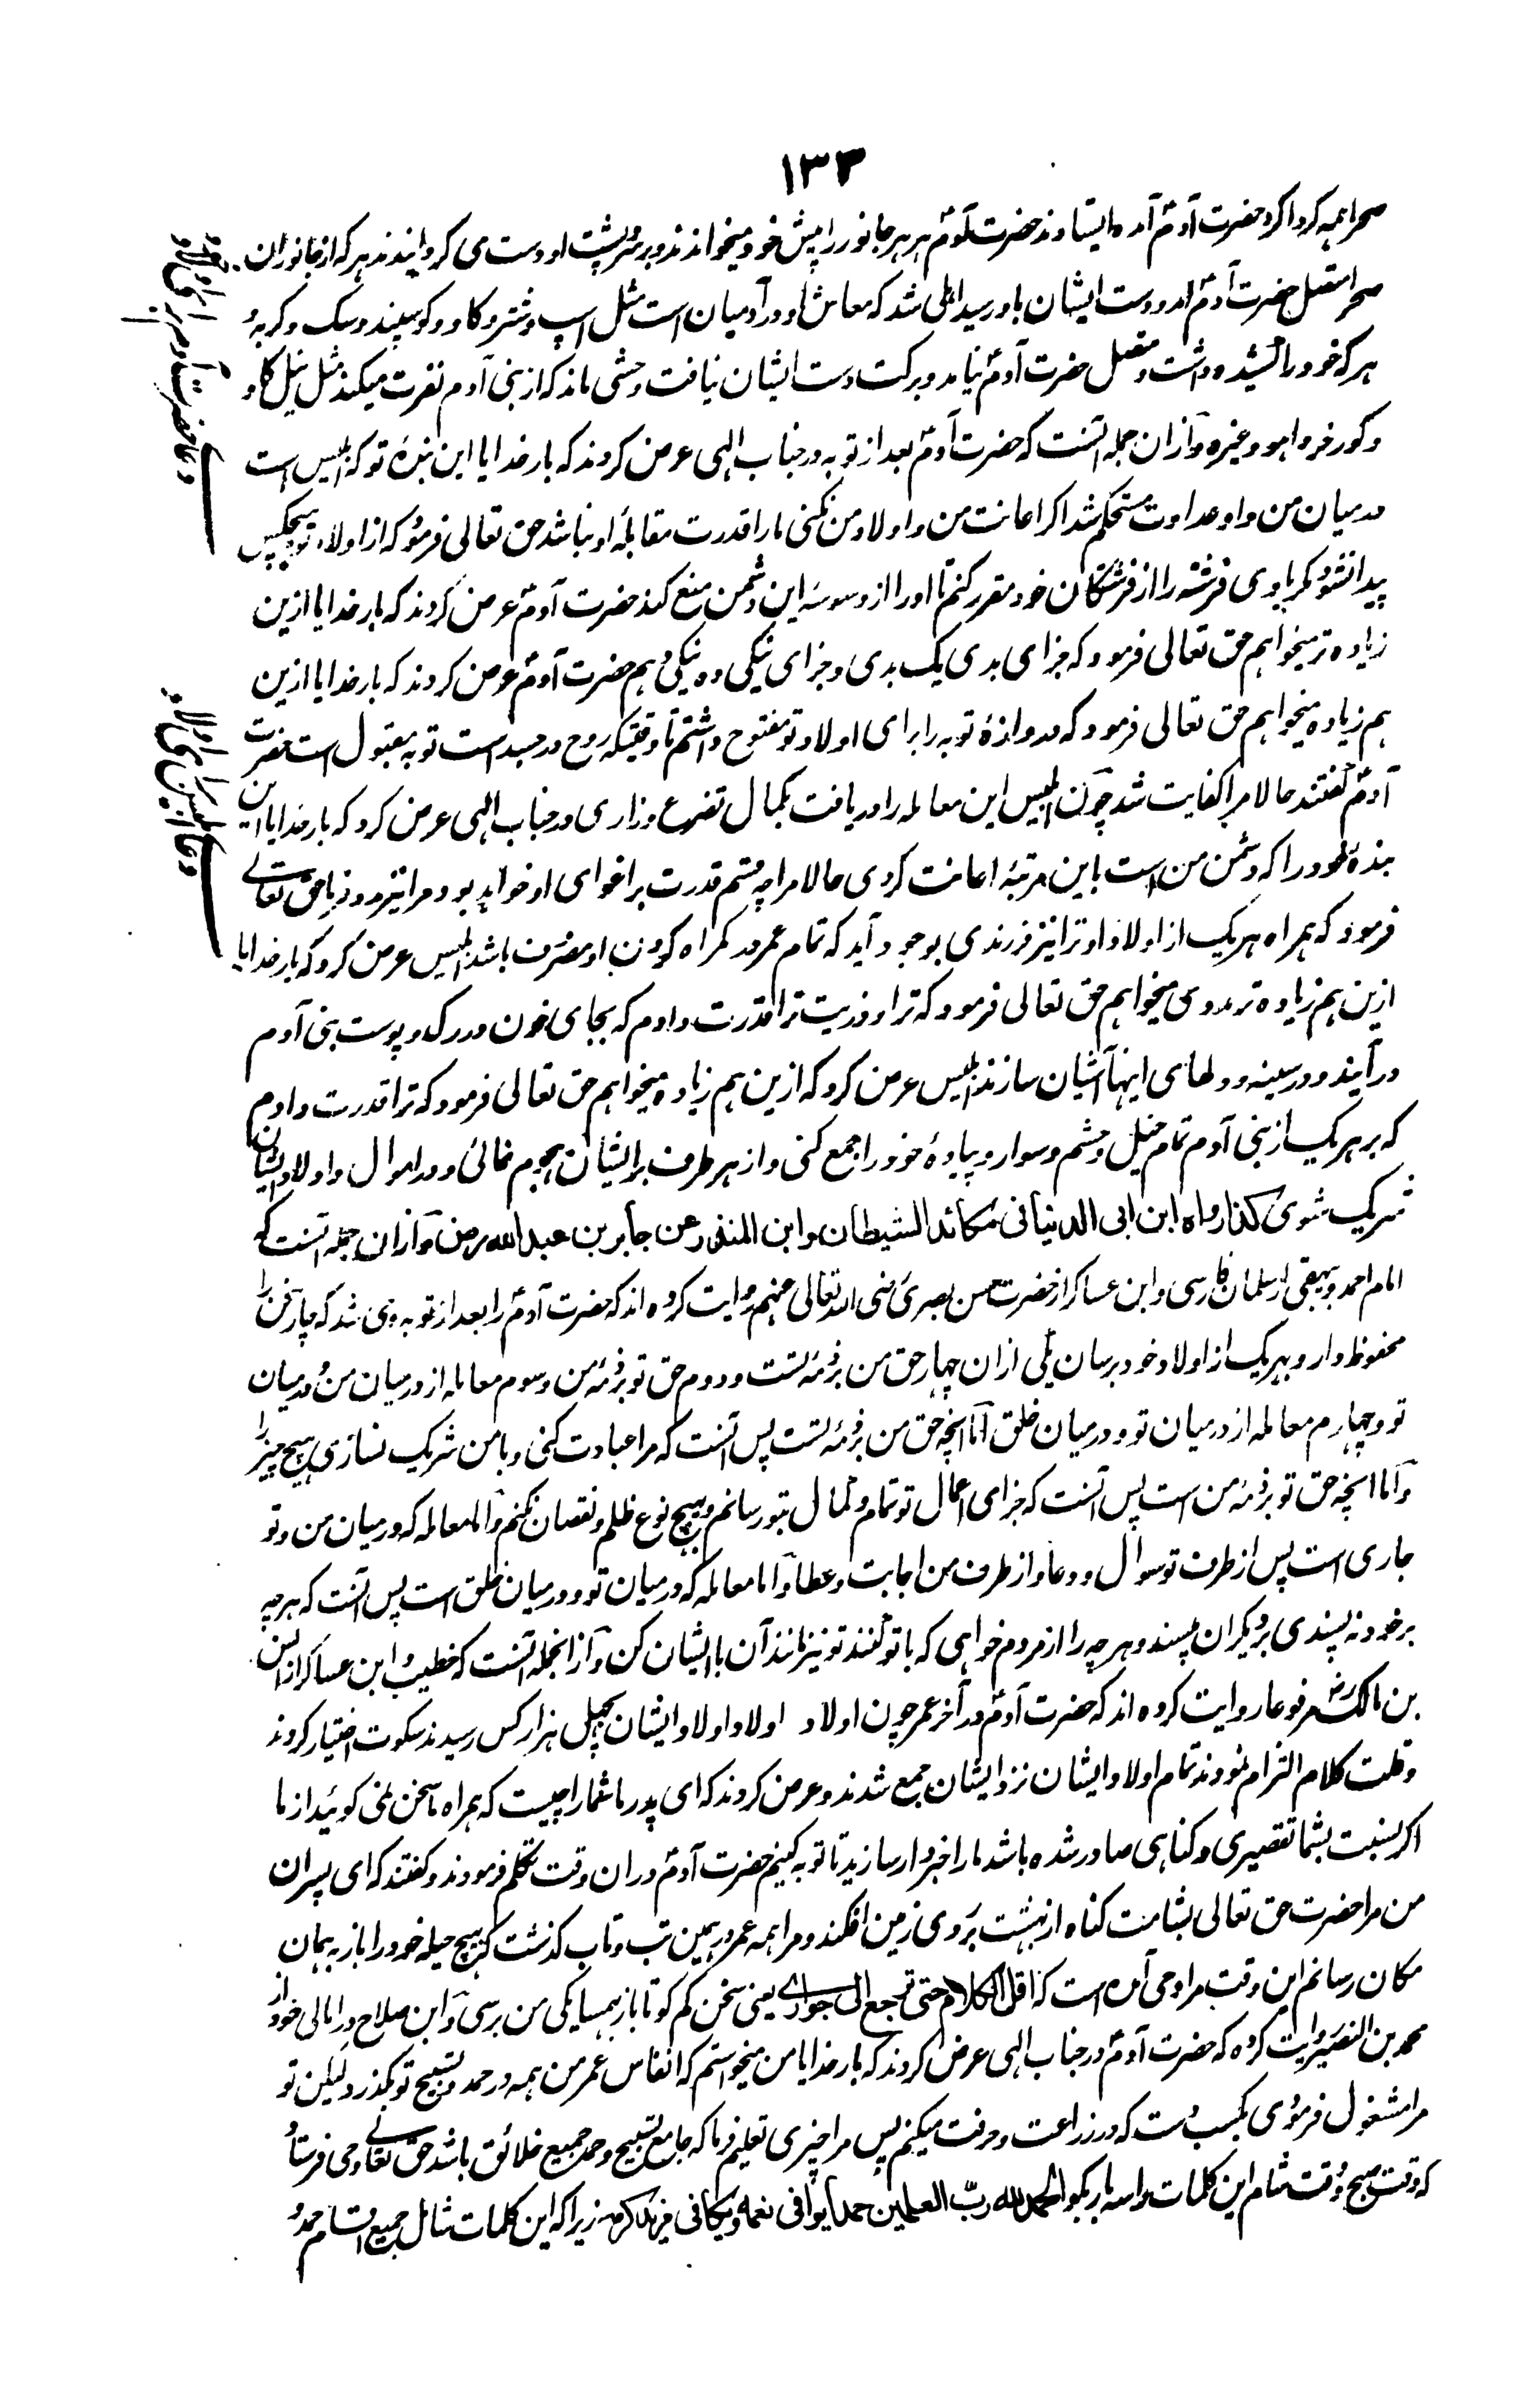 ۱۳۳
صحرا همه گرداگرد حضرت آدمؑ آمده ایستادند حضرت آدمؑ هر هر جانور را پیش خود میخواندند و بر سر و پشت او دست می گردانیدند هر که از جانوران
صحرا متصل حضرت آدمؑ آمد و دست ایشان باو رسید اهلی شد که معاش او در آدمیان است مثل اسپ و شتر و گاو و گوسپند و سگ و گربه و
هر که خود را کشیده داشت و متصل حضرت آدمؑ نیامد و برکت دست ایشان نیافت وحشی ماند که از بنی آدم نفرت میکند مثل نیل گاو
و گورخر و آهو و غیره و ازان جمله آنست که حضرت آدمؑ بعد از توبه در جناب الهی عرض کردند که بار خدایا این بندهٔ تو که ابلیس است
در میان من و او عداوت مستحکم شد اگر اعانت من و اولاد من نکنی ما را قدرت مقابلهٔ او نباشد حق تعالی فرمود که از اولاد تو هیچکس
پیدا نشود مگر باوی فرشته را از فرشتگان خود مقرر کنم تا او را از وسوسهٔ این دشمن منع کند حضرت آدمؑ عرض کردند که بار خدایا ازین
زیاده تر میخواهم حق تعالی فرمود که جزای بدی یک بدی و جزای نیکی ده نیکی دهم حضرت آدمؑ عرض کردند که بار خدایا ازین
هم زیاده میخواهم حق تعالی فرمود که دروازهٔ توبه را برای اولاد تو مفتوح داشتم تا وقتیکه روح در جسد است توبه مقبول است حضرت
آدمؑ گفتند حالا مرا کفایت شد چون ابلیس این معامله را دریافت بکمال تضرع و زاری در جناب الهی عرض کرد که بار خدایا این
بندهٔ خود را که دشمن من است باین مرتبه اعانت کردی حالا مرا چه قسم قدرت بر اغوای او خواهد بود مرا نیز مدد فرما حق تعالے
فرمود که همراه هر یک از اولاد او ترا نیز فرزندی بوجود آید که تمام عمر در گمراه کردن او مصرف باشد ابلیس عرض کرد که بار خدایا
ازین هم زیاده تر مددی میخواهم حق تعالی فرمود که ترا و ذریت ترا قدرت دادم که بجای خون در رگ و پوست بنی آدم
درآیند و در سینه و دلهای اینها آشیان سازند ابلیس عرض کرد که ازین هم زیاده میخواهم حق تعالی فرمود که ترا قدرت دادم
که بر هر یک از بنی آدم تمام خیل و حشم و سوار و پیادهٔ خود را جمع کنی و از هر طرف بر ایشان هجوم نمائی و در اموال و اولاد ایشان
شریک شوی کذا رواه ابن ابی الدنیا فی مکائد الشیطان و ابن المنذر عن جابر بن عبد الله رض و ازان جمله آنست که
امام احمد و بیهقی از سلمان فارسی و ابن عساکر از حضرت حسن بصری رضی الله تعالی عنهم روایت کرده اند که حضرت آدمؑ را بعد از توبه وحی شد که چار سخن را
محفوظ دار و بهر یک از اولاد خود برسان یکی ازان چهار حق من بر ذمهٔ تست و دوم حق تو بر ذمهٔ من و سوم معامله از درمیان من و درمیان
تو و چهارم معامله از درمیان تو و درمیان خلق اما آنچه حق من بر ذمهٔ تست پس آنست که مرا عبادت کنی و با من شریک نسازی هیچ چیز را
و اما آنچه حق تو بر ذمهٔ من است پس آنست که جزای اعمال تو تمام و کمال بتو رسانم و هیچ نوع ظلم و نقصان نکنم و اما معامله که درمیان من و تو
جاری است پس از طرف تو سوال و دعا و از طرف من اجابت و عطا و اما معامله که درمیان تو و درمیان خلق است پس آنست که هر چه
بر خود نه پسندی بر دیگران مپسند و هر چه را از مردم خواهی که با تو کنند تو نیز مانند آن با ایشان کن و ازانجمله آنست که خطیب و ابن عساکر از انس
بن مالکؓ مرفوعا روایت کرده اند که حضرت آدمؑ در آخر عمر چون اولاد اولاد اولاد ایشان بچهل هزار کس رسیدند سکوت اختیار کردند
و قلت کلام التزام نمودند تمام اولاد ایشان نزد ایشان جمع شدند و عرض کردند که ای پدر ما شما را چیست که همراه ما سخن نمی گوئید از ما
اگر نسبت بشما تقصیری و گناهی صادر شده باشد ما را خبردار سازید تا توبه کنیم حضرت آدمؑ دران وقت تکلم فرمودند و گفتند که ای پسران
من مرا حضرت حق تعالی بشامت گناه از بهشت بروی زمین افگند و مرا همه عمر در همین تب و تاب گذشت که بهیچ حیله خود را باز به همان
مکان رسانم این وقت مرا وحی آمده است که اقل الکلام حتی ترجع الی جواری یعنی سخن کم گو تا باز بهمسایگی من برسی و ابن صلاح در امالی خود از
محمد بن النضر روایت کرده که حضرت آدمؑ در جناب الهی عرض کردند که بار خدایا من میخواستم که انفاس عمر من همه در حمد و تسبیح تو بگذرد لیکن تو
مرا مشغول فرمودی بکسب دست که در زراعت و حرفت میکنم پس مرا چیزی تعلیم فرما که جامع تسبیح و حمد جمیع خلائق باشد حق تعالے وحی فرستاد
که وقت صبح و وقت شام این کلمات را سه بار بگو الحمد لله ربّ العلمین حمدا یوافی نعمه و یکافی مزید کرمه زیرا که این کلمات شامل جمیع اقسام حمد
دعا حضرت آدم برای اولاد
دعا ابلیس برای اولاد